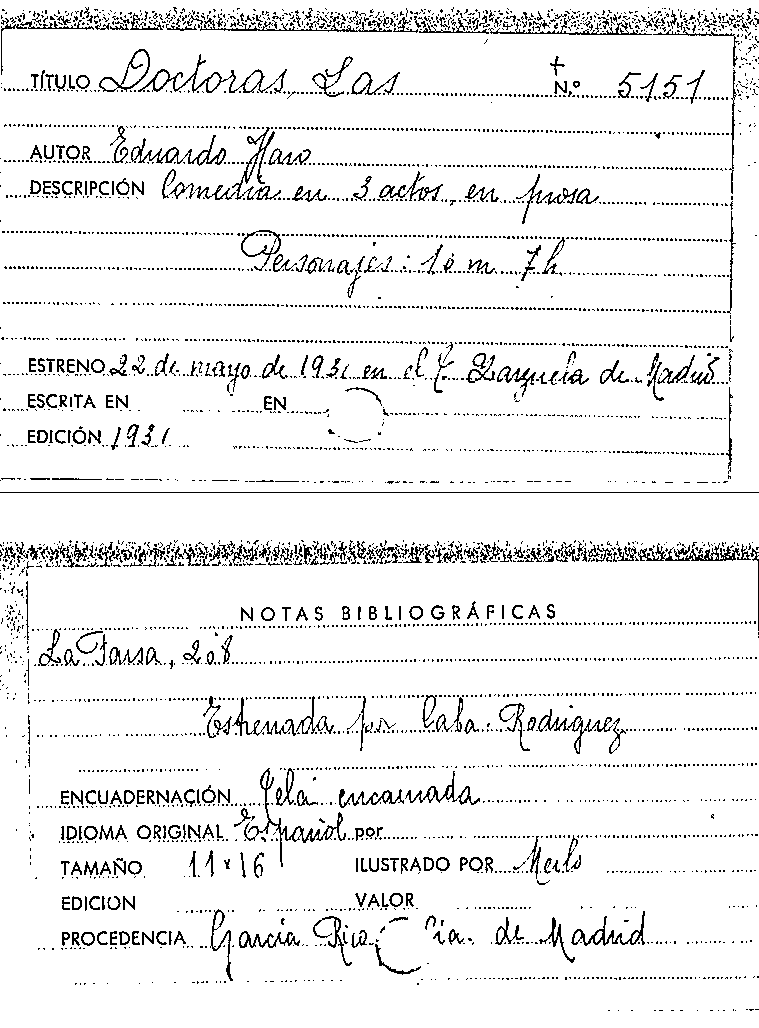 TÍTULO Doctoras, Las N.º 5151
AUTOR Eduardo Haro
DESCRIPCIÓN Comedia en 3 actos, en prosa
Personajes: 10 m 7 h
ESTRENO 22 de mayo de 1931 en el T. Zarzuela de Madrid
ESCRITA EN EN
EDICIÓN 1931
NOTAS BIBLIOGRÁFICAS
La Farsa, 208
Estrenada por Caba-Rodriguez
ENCUADERNACIÓN Tela encarnada
IDIOMA ORIGINAL Español por
TAMAÑO 11 x 16 ILUSTRADO POR Merlo
EDICION VALOR
PROCEDENCIA García Rico, Cia. de Madrid